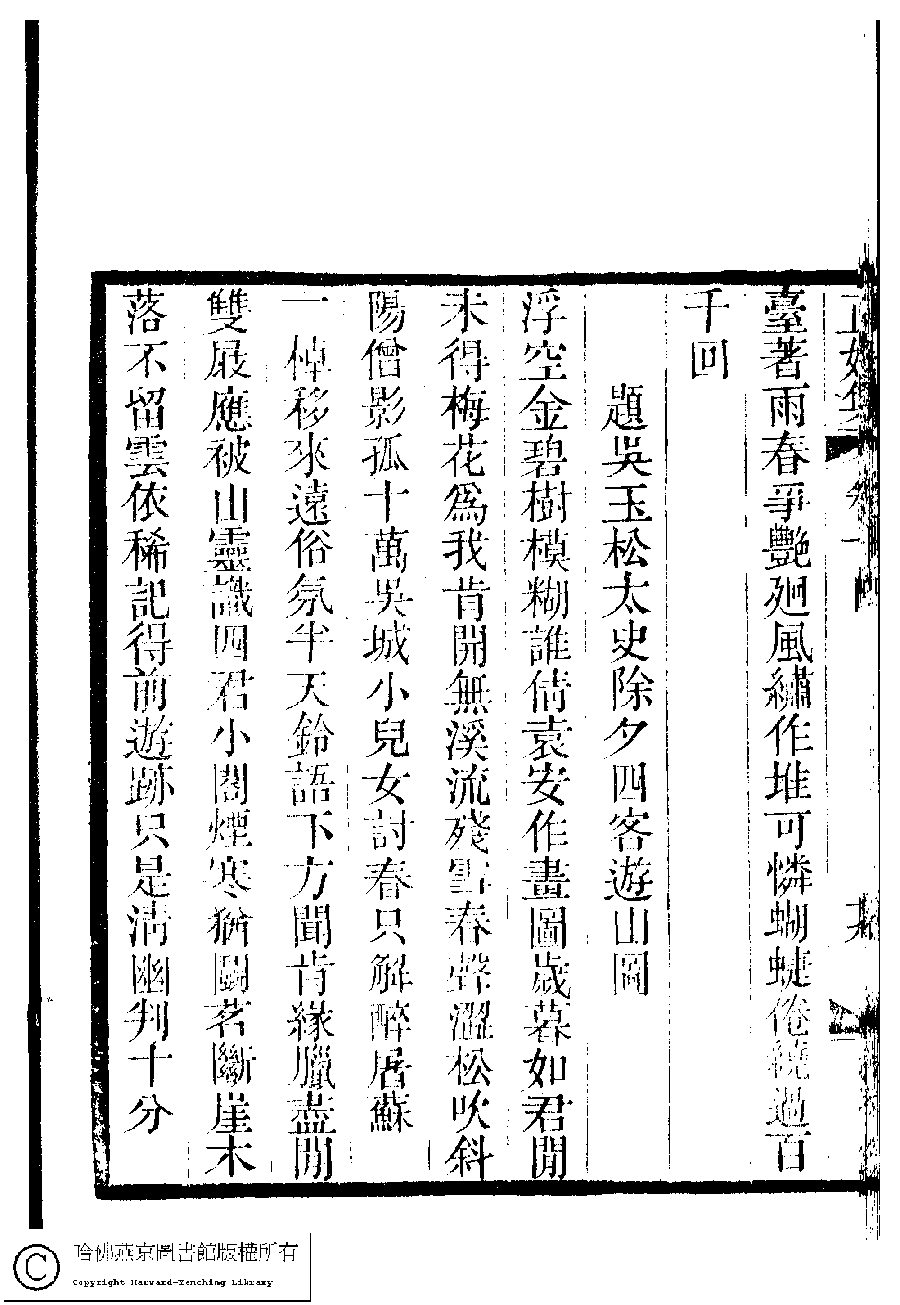 臺著雨春爭艷廻風繡作堆可憐蝴蜨倦繞過百
千回
題吳玉松太史除夕四客遊山圖
浮空金碧樹模糊誰倩袁安作畫圖歲暮如君閒
未得梅花爲我肯開無溪流殘雪春聲澀松吹斜
陽僧影孤十萬吳城小兒女討春只解醉屠蘇
一棹移來遠俗氛半天鈴語下方聞肯緣臘盡閒
雙屐應被山靈識四君小閣煙寒猶鬭茗斷崖木
落不留雲依稀記得前遊跡只是淸幽判十分
哈佛燕京圖書館版權所有
Copyright Harvard-Yenching Library